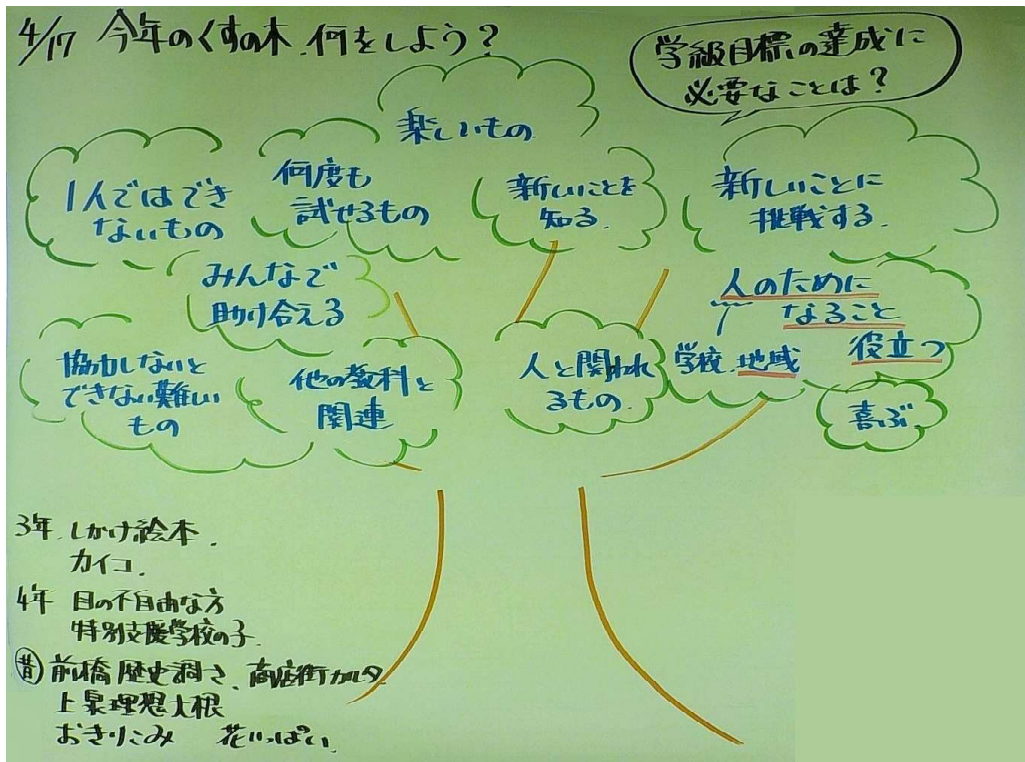 4/17 今年のくすの木、何をしよう?
学級目標の達成に
必要なことは?
楽しいもの
1人ではでき
ないもの
何度も
試せるもの
新しいことを
知る。
新しいことに
挑戦する。
みんなで
助け合える
人のために
なること
役立つ
学校、地域
喜ぶ
協力しないと
できない難しい
もの
他の教科と
関連
人と関われ
るもの。
3年、しかけ絵本。
カイコ。
4年 目の不自由な方
特別支援学校の子。
昔 前橋歴史調さ、商店街カルタ
上泉理想大根
おきりこみ 花いっぱい。